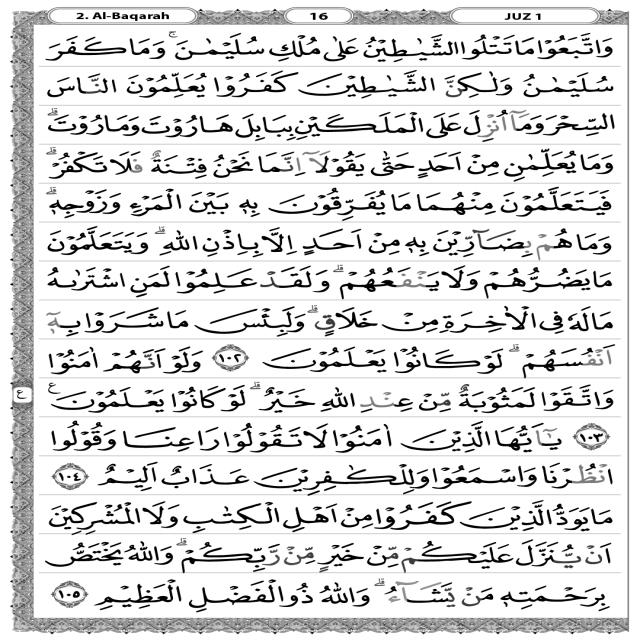 2. Al-Baqarah 16 JUZ 1
وَاتَّبَعُوْا مَا تَتْلُوا الشَّيٰطِيْنُ عَلٰى مُلْكِ سُلَيْمٰنَ ۚ وَمَا كَفَرَ
سُلَيْمٰنُ وَلٰكِنَّ الشَّيٰطِيْنَ كَفَرُوْا يُعَلِّمُوْنَ النَّاسَ
السِّحْرَ وَمَآ اُنْزِلَ عَلَى الْمَلَكَيْنِ بِبَابِلَ هَارُوْتَ وَمَارُوْتَ ۗ
وَمَا يُعَلِّمٰنِ مِنْ اَحَدٍ حَتّٰى يَقُوْلَآ اِنَّمَا نَحْنُ فِتْنَةٌ فَلَا تَكْفُرْ ۗ
فَيَتَعَلَّمُوْنَ مِنْهُمَا مَا يُفَرِّقُوْنَ بِهٖ بَيْنَ الْمَرْءِ وَزَوْجِهٖ ۗ
وَمَا هُمْ بِضَآرِّيْنَ بِهٖ مِنْ اَحَدٍ اِلَّا بِاِذْنِ اللّٰهِ ۗ وَيَتَعَلَّمُوْنَ
مَا يَضُرُّهُمْ وَلَا يَنْفَعُهُمْ ۗ وَلَقَدْ عَلِمُوْا لَمَنِ اشْتَرٰىهُ
مَا لَهٗ فِى الْاٰخِرَةِ مِنْ خَلَاقٍ ۗ وَلَبِئْسَ مَا شَرَوْا بِهٖٓ
اَنْفُسَهُمْ ۗ لَوْ كَانُوْا يَعْلَمُوْنَ ١٠٢ وَلَوْ اَنَّهُمْ اٰمَنُوْا
وَاتَّقَوْا لَمَثُوْبَةٌ مِّنْ عِنْدِ اللّٰهِ خَيْرٌ ۗ لَوْ كَانُوْا يَعْلَمُوْنَ ع
١٠٣ يٰٓاَيُّهَا الَّذِيْنَ اٰمَنُوْا لَا تَقُوْلُوْا رَاعِنَا وَقُوْلُوا
انْظُرْنَا وَاسْمَعُوْا وَلِلْكٰفِرِيْنَ عَذَابٌ اَلِيْمٌ ١٠٤
مَا يَوَدُّ الَّذِيْنَ كَفَرُوْا مِنْ اَهْلِ الْكِتٰبِ وَلَا الْمُشْرِكِيْنَ
اَنْ يُّنَزَّلَ عَلَيْكُمْ مِّنْ خَيْرٍ مِّنْ رَّبِّكُمْ ۗ وَاللّٰهُ يَخْتَصُّ
بِرَحْمَتِهٖ مَنْ يَّشَآءُ ۗ وَاللّٰهُ ذُو الْفَضْلِ الْعَظِيْمِ ١٠٥
ع